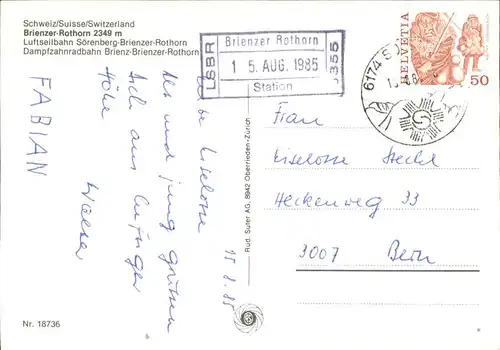 Schweiz/Suisse/Switzerland
Brienzer-Rothorn 2349 m
Luftseilbahn Sörenberg-Brienzer-Rothorn
Dampfzahnradbahn Brienz-Brienzer-Rothorn
LSBR
Brienzer Rothorn
1 5. AUG. 1985
Station
6174 S
HELVETIA
50
15.8.85
Liselotte
Alt und jung grüssen
Dich aus luftiger
Höhe
Walter
FABIAN
Rud. Suter AG, 8942 Oberrieden-Zürich
Frau
Liselotte
Heckenweg 33
3007 Bern
Nr. 18736